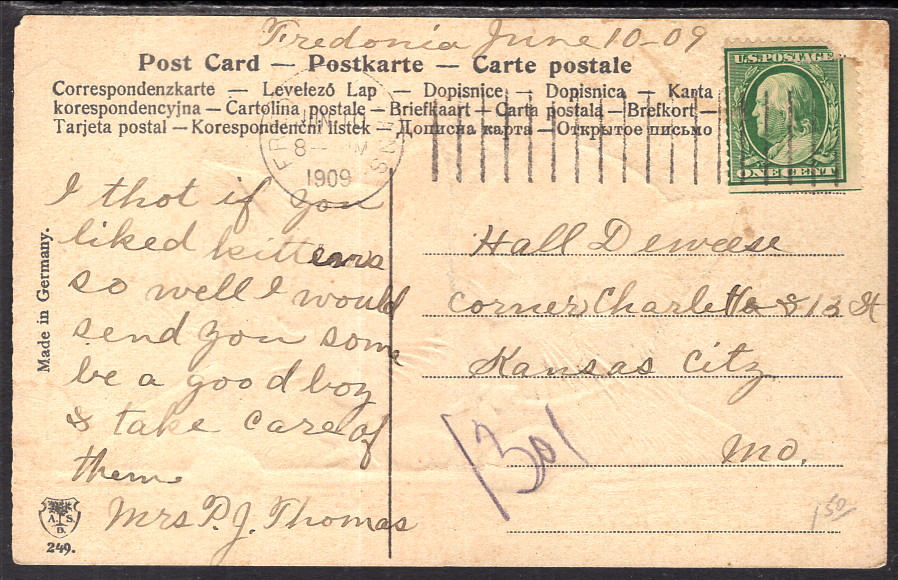 Fredonia June 10-09
Post Card — Postkarte — Carte postale
Correspondenzkarte — Levelező Lap — Dopisnice — Dopisnica — Karta
korespondencyjna — Cartolina postale — Briefkaart — Carta postala — Brefkort —
Tarjeta postal — Korespondenční lístek — Дописна карта — Открытое письмо
U.S.POSTAGE
ONE CENT
FR
8 — M
1909
Made in Germany.
I thot if you
liked kittens
so well I would
send you some
be a good boy
& take care of
them
Mrs P. J. Thomas
Hall Deweese
corner Charlotte & 13 St
Kansas City
Mo.
1301
150
A. S.
B.
249.